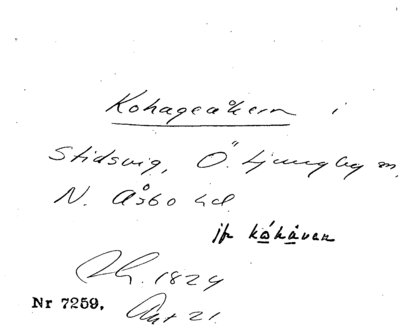 Kohageåkern i
Stidsvig, Ö. Ljungby sn,
N. Åsbo hd
jfr kóhåven
1824
Nr 7259. Akt 21.